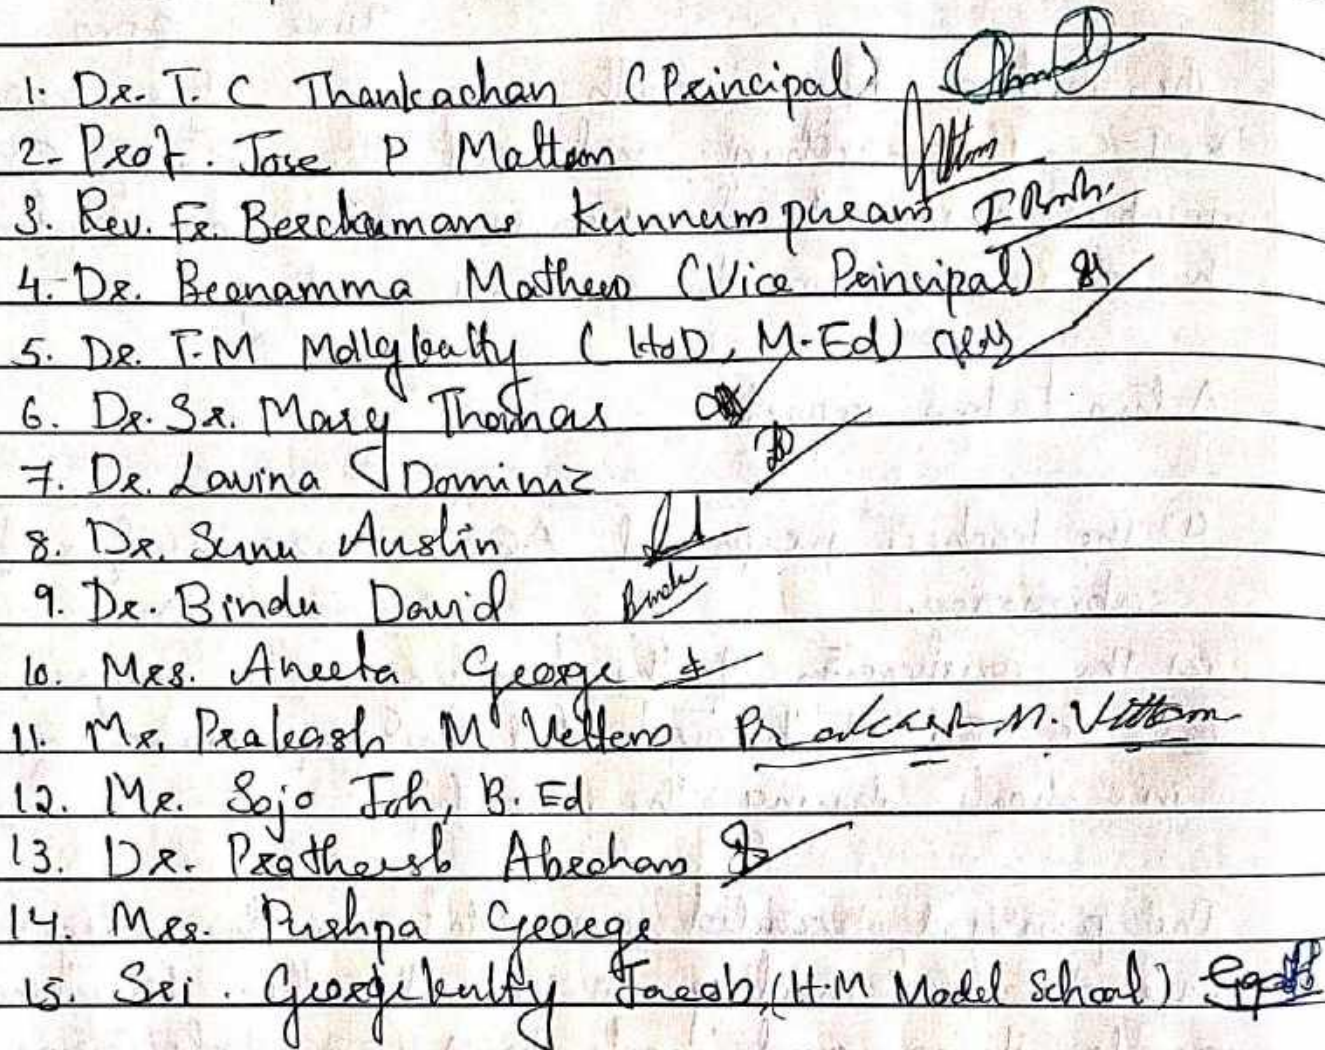 1. Dr. T. C Thankachan (Principal)
2- Prof. Jose P Mattam
3. Rev. Fr. Berchumans Kunnumpuram
4. Dr. Beenamma Mathew (Vice Principal)
5. Dr. T.M Mollykutty (HoD, M.Ed)
6. Dr. Sr. Mary Thomas
7. Dr. Lavina Dominic
8. Dr. Sunu Austin
9. Dr. Bindu David Bindu
10. Mrs. Aneeta George
11. Mr. Prakash M Vettem Prakash M. Vettom
12. Mr. Sojo Joh, B. Ed
13. Dr. Pratheesh Abraham
14. Mrs. Pushpa George
15. Sri. Georgekutty Jacob, (H.M Model School)